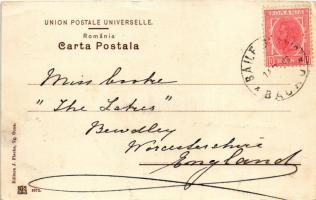 UNION POSTALE UNIVERSELLE.
România
Carta Postala
ROMANIA
BACAU
Miss Cooke
"The Lakes"
Bewdley
Worcestershire
England